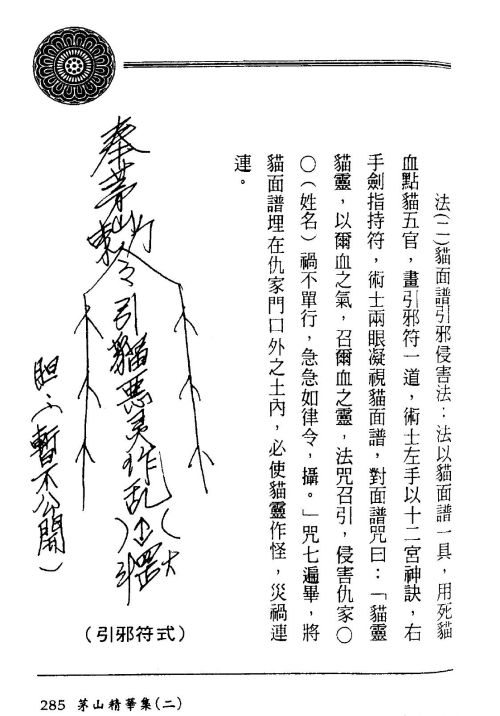 法(二)貓面譜引邪侵害法：法以貓面譜一具，用死貓
血點貓五官，畫引邪符一道，術士左手以十二宮神訣，右
手劍指持符，術士兩眼凝視貓面譜，對面譜咒曰：「貓靈
貓靈，以爾血之氣，召爾血之靈，法咒召引，侵害仇家○
○(姓名)禍不單行，急急如律令，攝。」咒七遍畢，將
貓面譜埋在仇家門口外之土內，必使貓靈作怪，災禍連
連。
奉茅山
令引貓惡灵作乱
暫不公開)
(引邪符式)
285 茅山精華集(二)